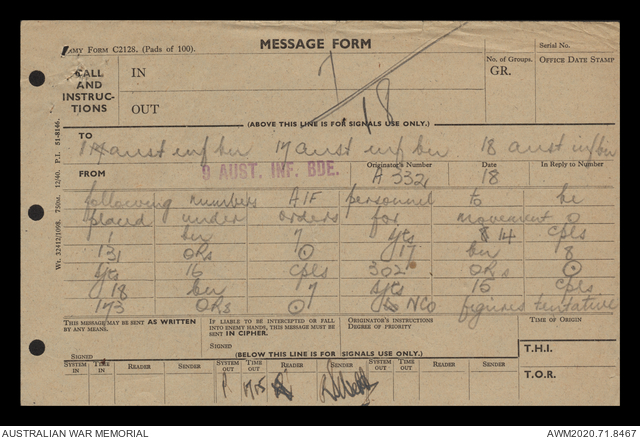 ARMY FORM C2128. (Pads of 100).
MESSAGE FORM
Serial No.
CALL AND INSTRUCTIONS
IN
OUT
No. of Groups.
GR.
OFFICE DATE STAMP
7
18
(ABOVE THIS LINE IS FOR SIGNALS USE ONLY.)
TO
aust inf bn 17 aust inf bn 18 aust inf bn
FROM
9 AUST. INF. BDE.
Originator's Number
A 332
Date
18
In Reply to Number
following numbers AIF personnel to be
placed under orders for movement
1 bn 7 sgts 14 cpls
131 ORs 17 bn 8
sgts 16 cpls 302 ORs
18 bn 7 sgts 15 cpls
173 ORs NCO figures tentative
Wt. 32412/1098. 750M. 12/40. P.I. 51-8146.
THIS MESSAGE MAY BE SENT AS WRITTEN BY ANY MEANS.
SIGNED
IF LIABLE TO BE INTERCEPTED OR FALL INTO ENEMY HANDS, THIS MESSAGE MUST BE SENT IN CIPHER.
SIGNED
ORIGINATOR'S INSTRUCTIONS
DEGREE OF PRIORITY
TIME OF ORIGIN
(BELOW THIS LINE IS FOR SIGNALS USE ONLY.)
T.H.I.
T.O.R.
SYSTEM IN TIME IN READER SENDER SYSTEM OUT TIME OUT READER SENDER SYSTEM OUT TIME OUT READER SENDER
AUSTRALIAN WAR MEMORIAL
AWM2020.71.8467